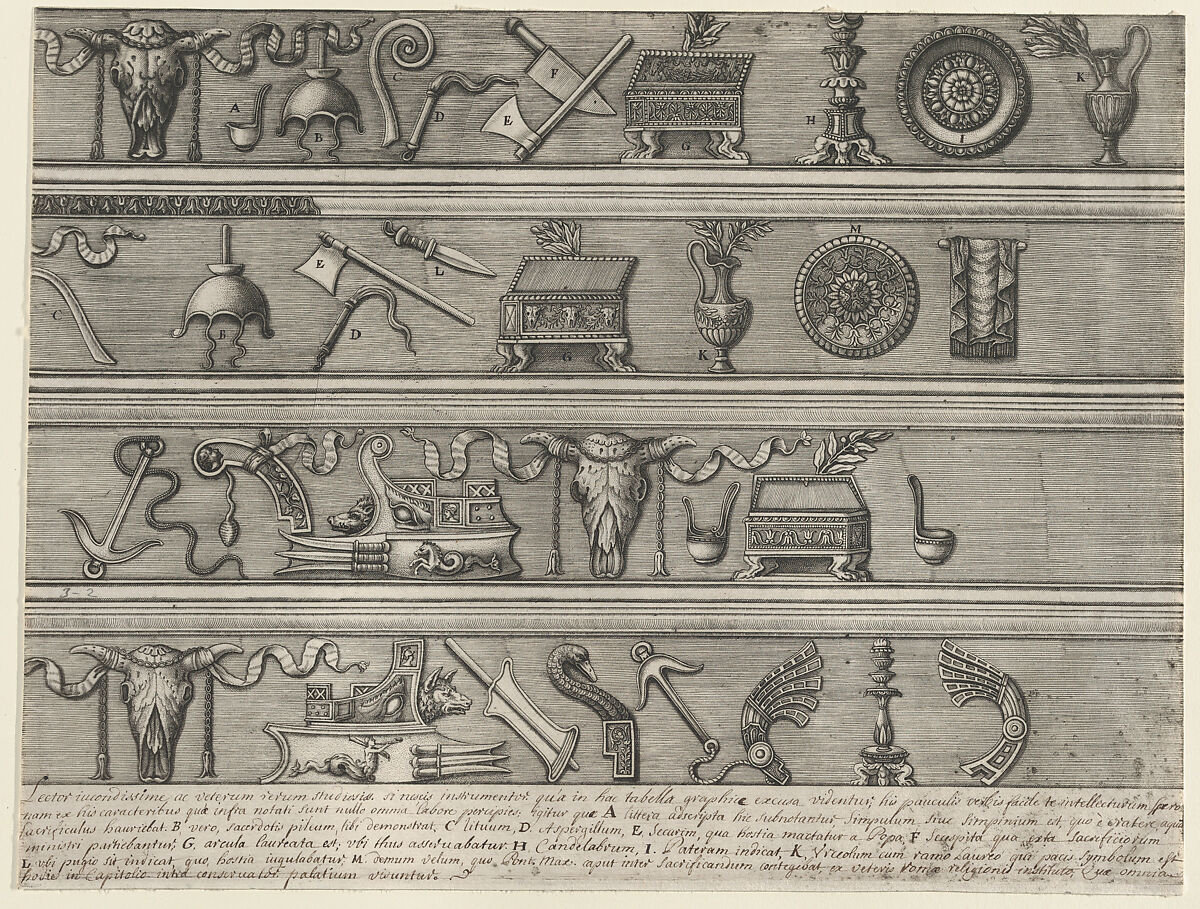 A
B
C
D
E
F
G
H
I
K
C
B
E
D
L
G
K
M
3-2
Lector iucondissime ac veterum rerum studiosiss. si nescis instrumentor. quæ in hac tabella graphice excusa videntur, his pauculis verbis facile te intellecturum
nam ex his caracteribus quæ infra notati sunt nullo omnia labore percipies; igitur quæ A littera adscripta hic subnotantur, simpulum siue simpinium est, quo è cratere aqua
sacrificulus hauriebat. B vero, sacerdotis pileum sibi demonstrat, C lituum, D. Aspergillum, E Securim, qua hostia mactatur a Popa, F Secespita qua exta sacrificiorum
ministri partiebantur, G, arcula laureata est, vbi thus asseruabatur. H Candelabrum, I. Pateram indicat, K, Vrceolum cum ramo Laureo qui pacis symbolum est
L vbi pugio sit indicat, quo, hostia iugulabatur, M demum velum, quo Pont. Max. caput inter sacrificandum contegebat, ex veteris romæ religionis instituto, Quæ omnia
hodie in Capitolio intra conseruator palatium visuntur.